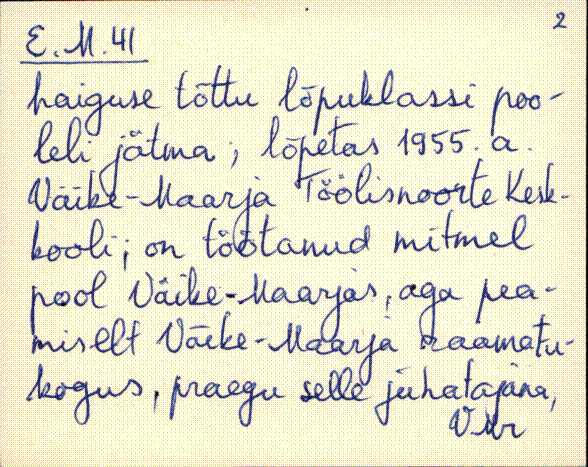 2
E.M.41
haiguse tõttu lõpuklassi poo-
leli jätma; lõpetas 1955. a.
Väike-Maarja Töölisnoorte Kesk-
kooli; on töötanud mitmel
pool Väike-Maarjas, aga pea-
miselt Väike-Maarja raamatu-
kogus, praegu selle juhatajana,